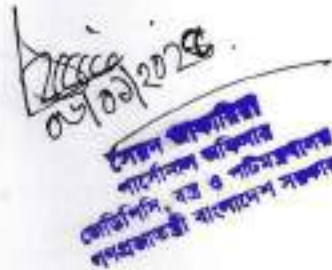 ০৮/০১/২০২৫
সৈয়দ জাকারিয়া
পার্সোনাল অফিসার
জেডিপিসি, বস্ত্র ও পাট মন্ত্রণালয়
গণপ্রজাতন্ত্রী বাংলাদেশ সরকার